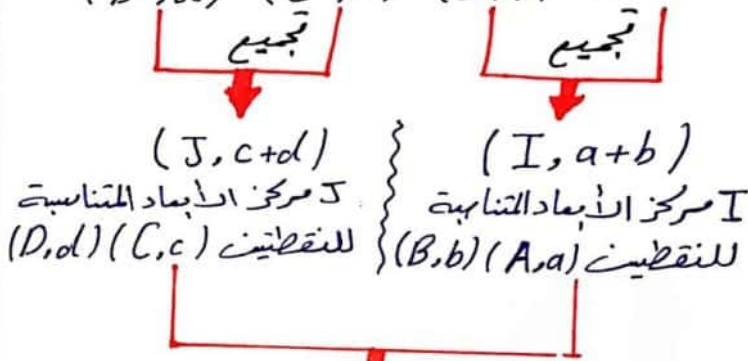 تجميع
تجميع
(I, a+b)
I مركز الأبعاد المتناسبة
للنقطتين (A,a) (B,b)
(J, c+d)
J مركز الأبعاد المتناسبة
للنقطتين (C,c) (D,d)